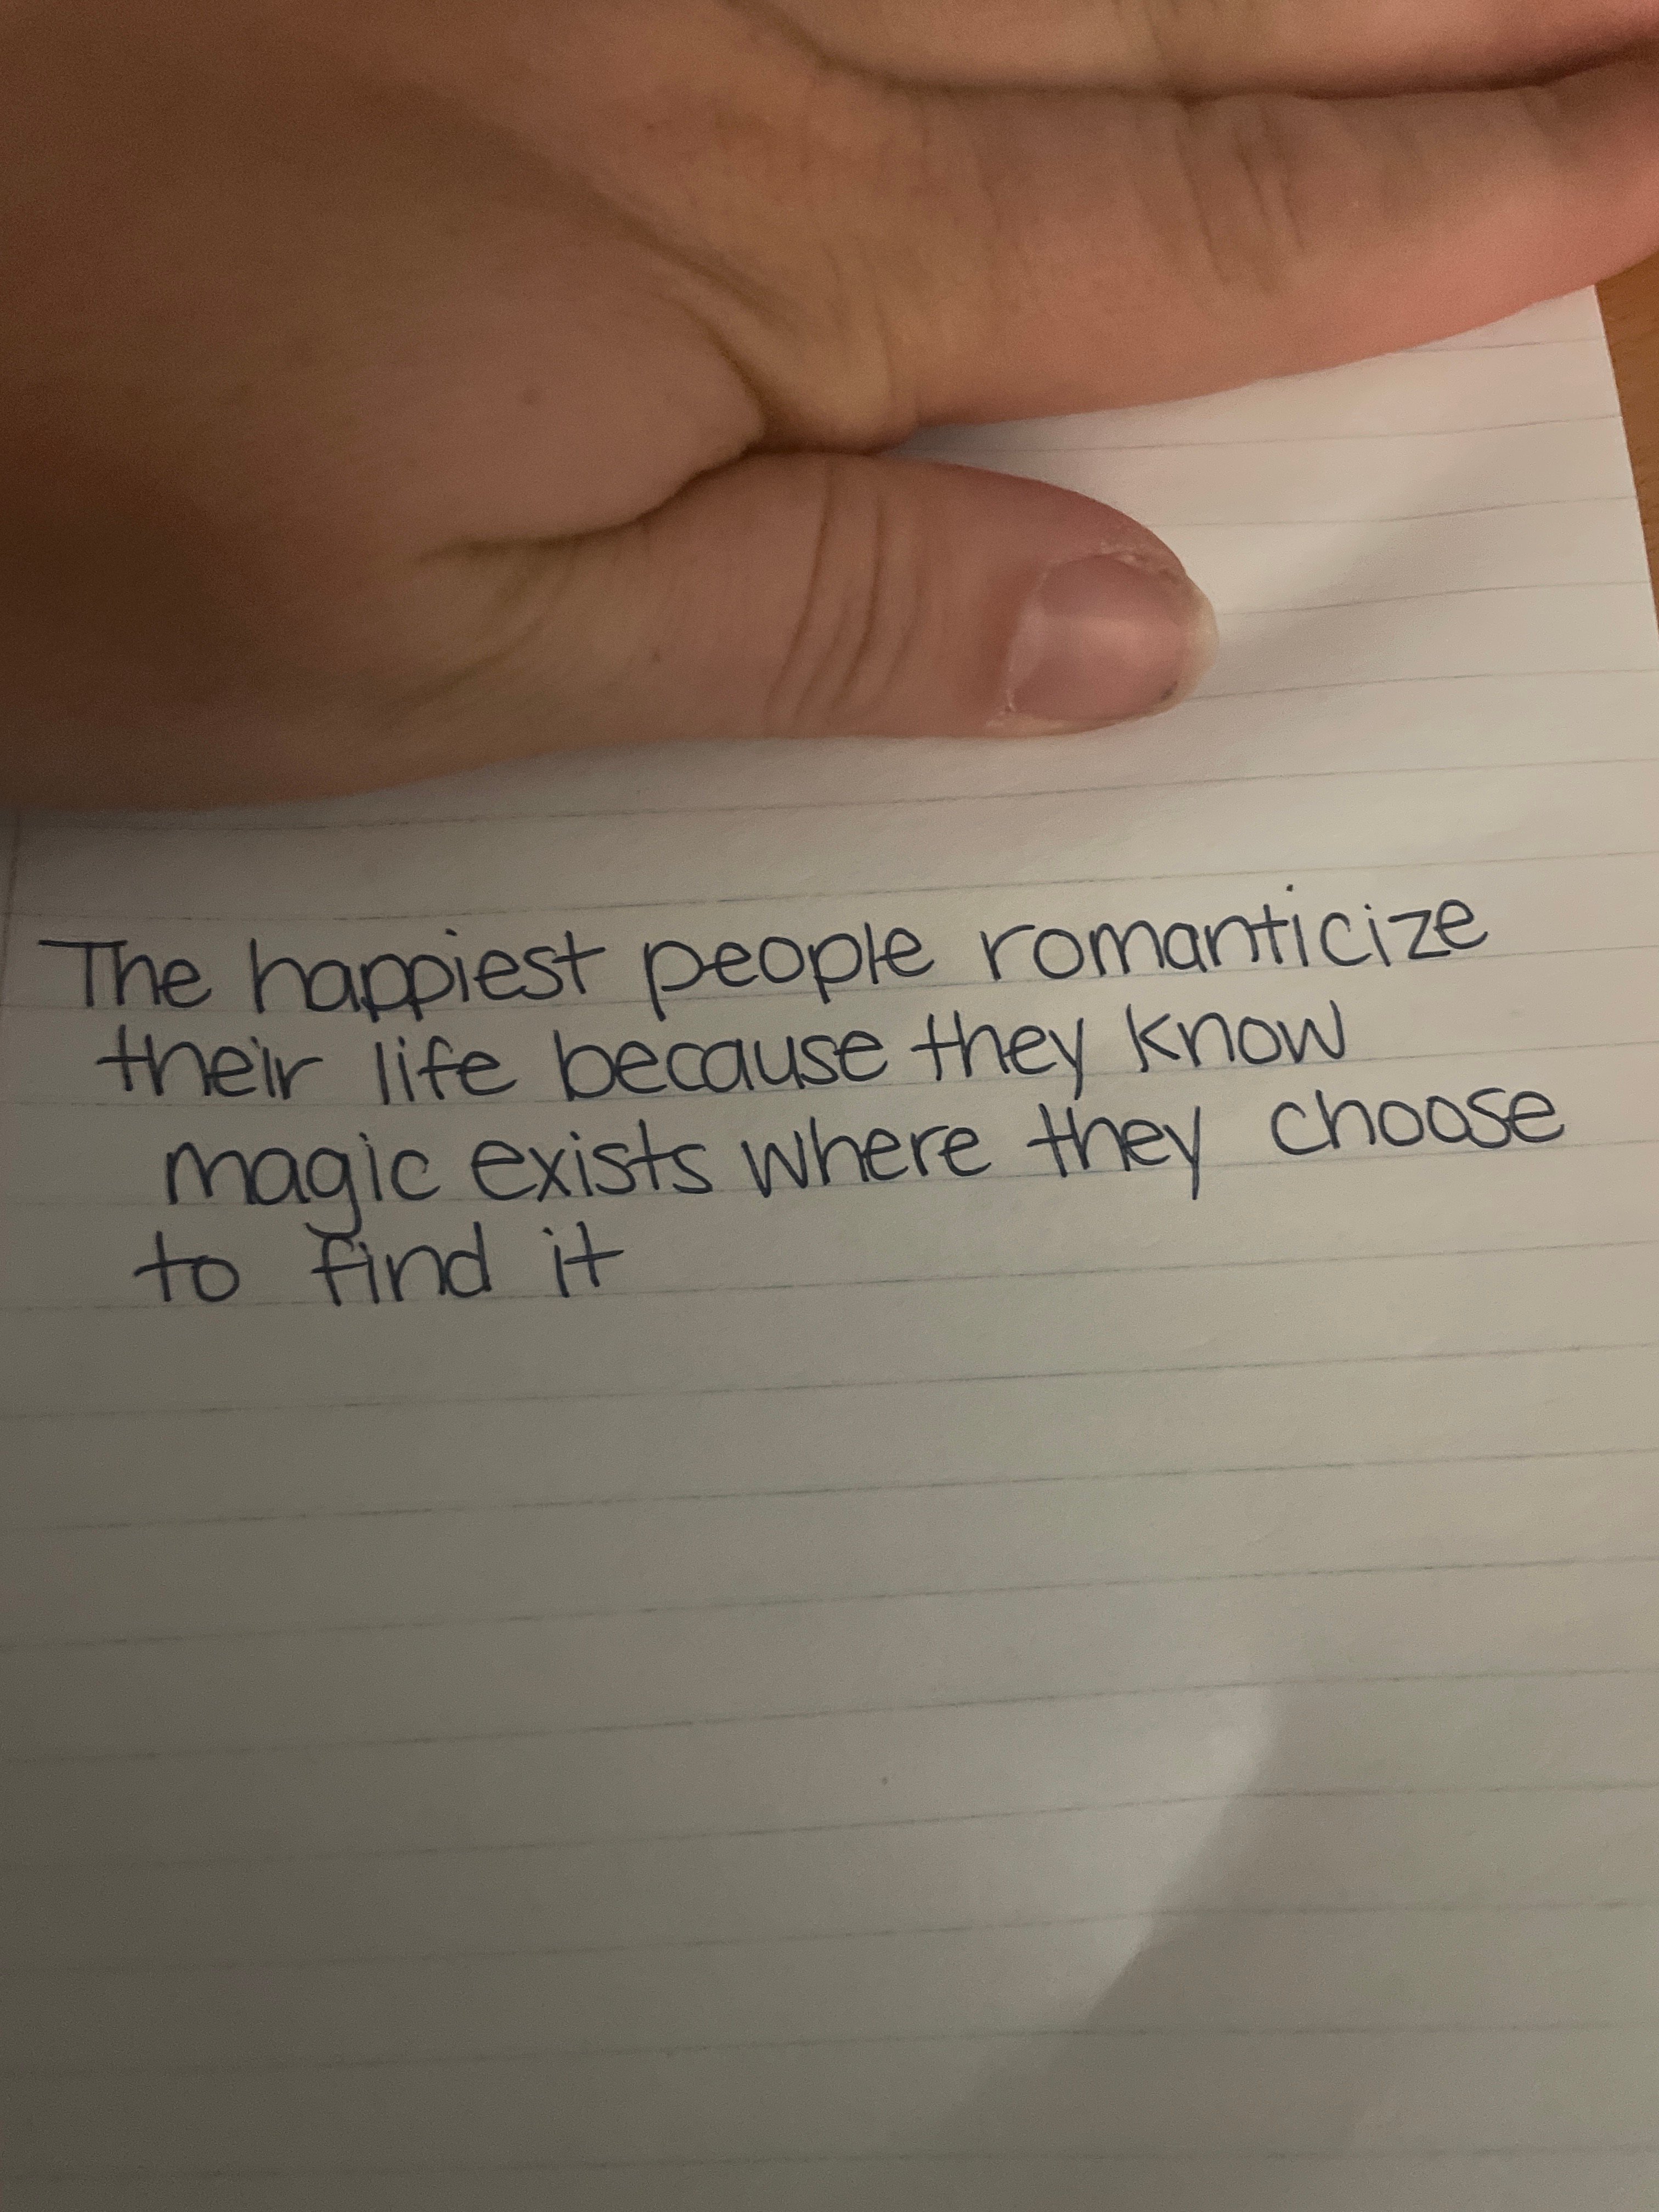 The happiest people romanticize
their life because they know
magic exists where they choose
to find it